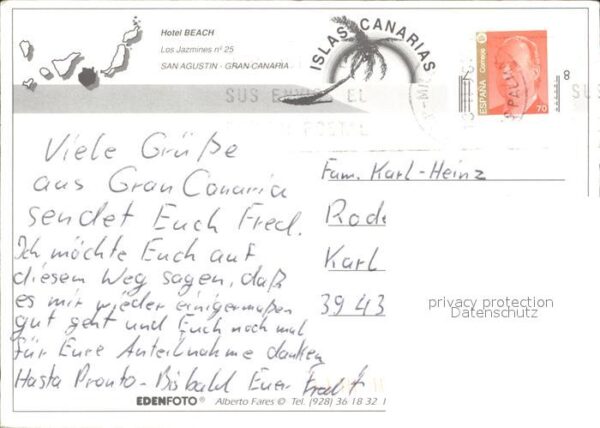 Hotel BEACH
Los Jazmines nº 25
SAN AGUSTIN - GRAN CANARIA
ISLAS CANARIAS
SUS EL
POSTAL
ESPAÑA
Correos
70
PALMA
8
SUS
Viele Grüße
aus Gran Canaria
sendet Euch Fred.
Ich möchte Euch auf
diesem Weg sagen, daß
es mir wieder einigermaßen
gut geht und Euch noch mal
für Eure Anteilnahme danken
Hasta Pronto - Bisbald Euer Fred
Fam. Karl-Heinz
Rode
Karl
39 43
privacy protection
Datenschutz
EDENFOTO® Alberto Fares © Tel. (928) 36 18 32